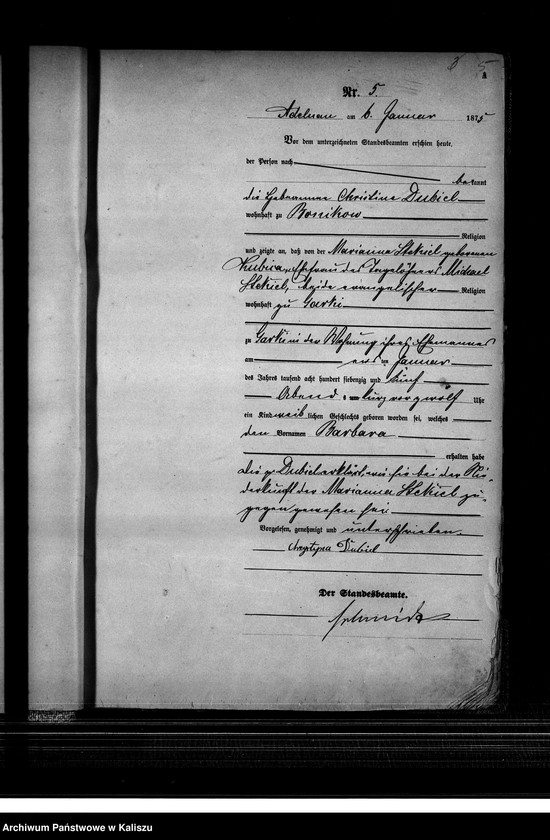 5
A
Nr. 5.
Adelnau am 6. Januar 1875
Vor dem unterzeichneten Standesbeamten erschien heute,
der Person nach
bekannt
die Hebamme Christine Dubiel
wohnhaft zu Bonikow
Religion
und zeigte an, daß von der Marianna Stekiel geborenen
Kubira, Ehefrau des Tagelöhners Michael
Stekiel, beide evangelischer Religion
wohnhaft zu Garki
zu Garki in der Wohnung ihres Ehemannes
am ersten Januar
des Jahres tausend acht hundert siebenzig und fünf
Abend um kurz vor zwölf Uhr
ein Kind weiblichen Geschlechts geboren worden sei, welches
den Vornamen Barbara
erhalten habe
Die p. Dubiel erklärt, wie sie bei der Nie-
derkunft der Marianna Stekiel zu-
gegen gewesen sei.
Vorgelesen, genehmigt und unterschrieben.
Dubiel
Der Standesbeamte.
Schmidt
Archiwum Państwowe w Kaliszu